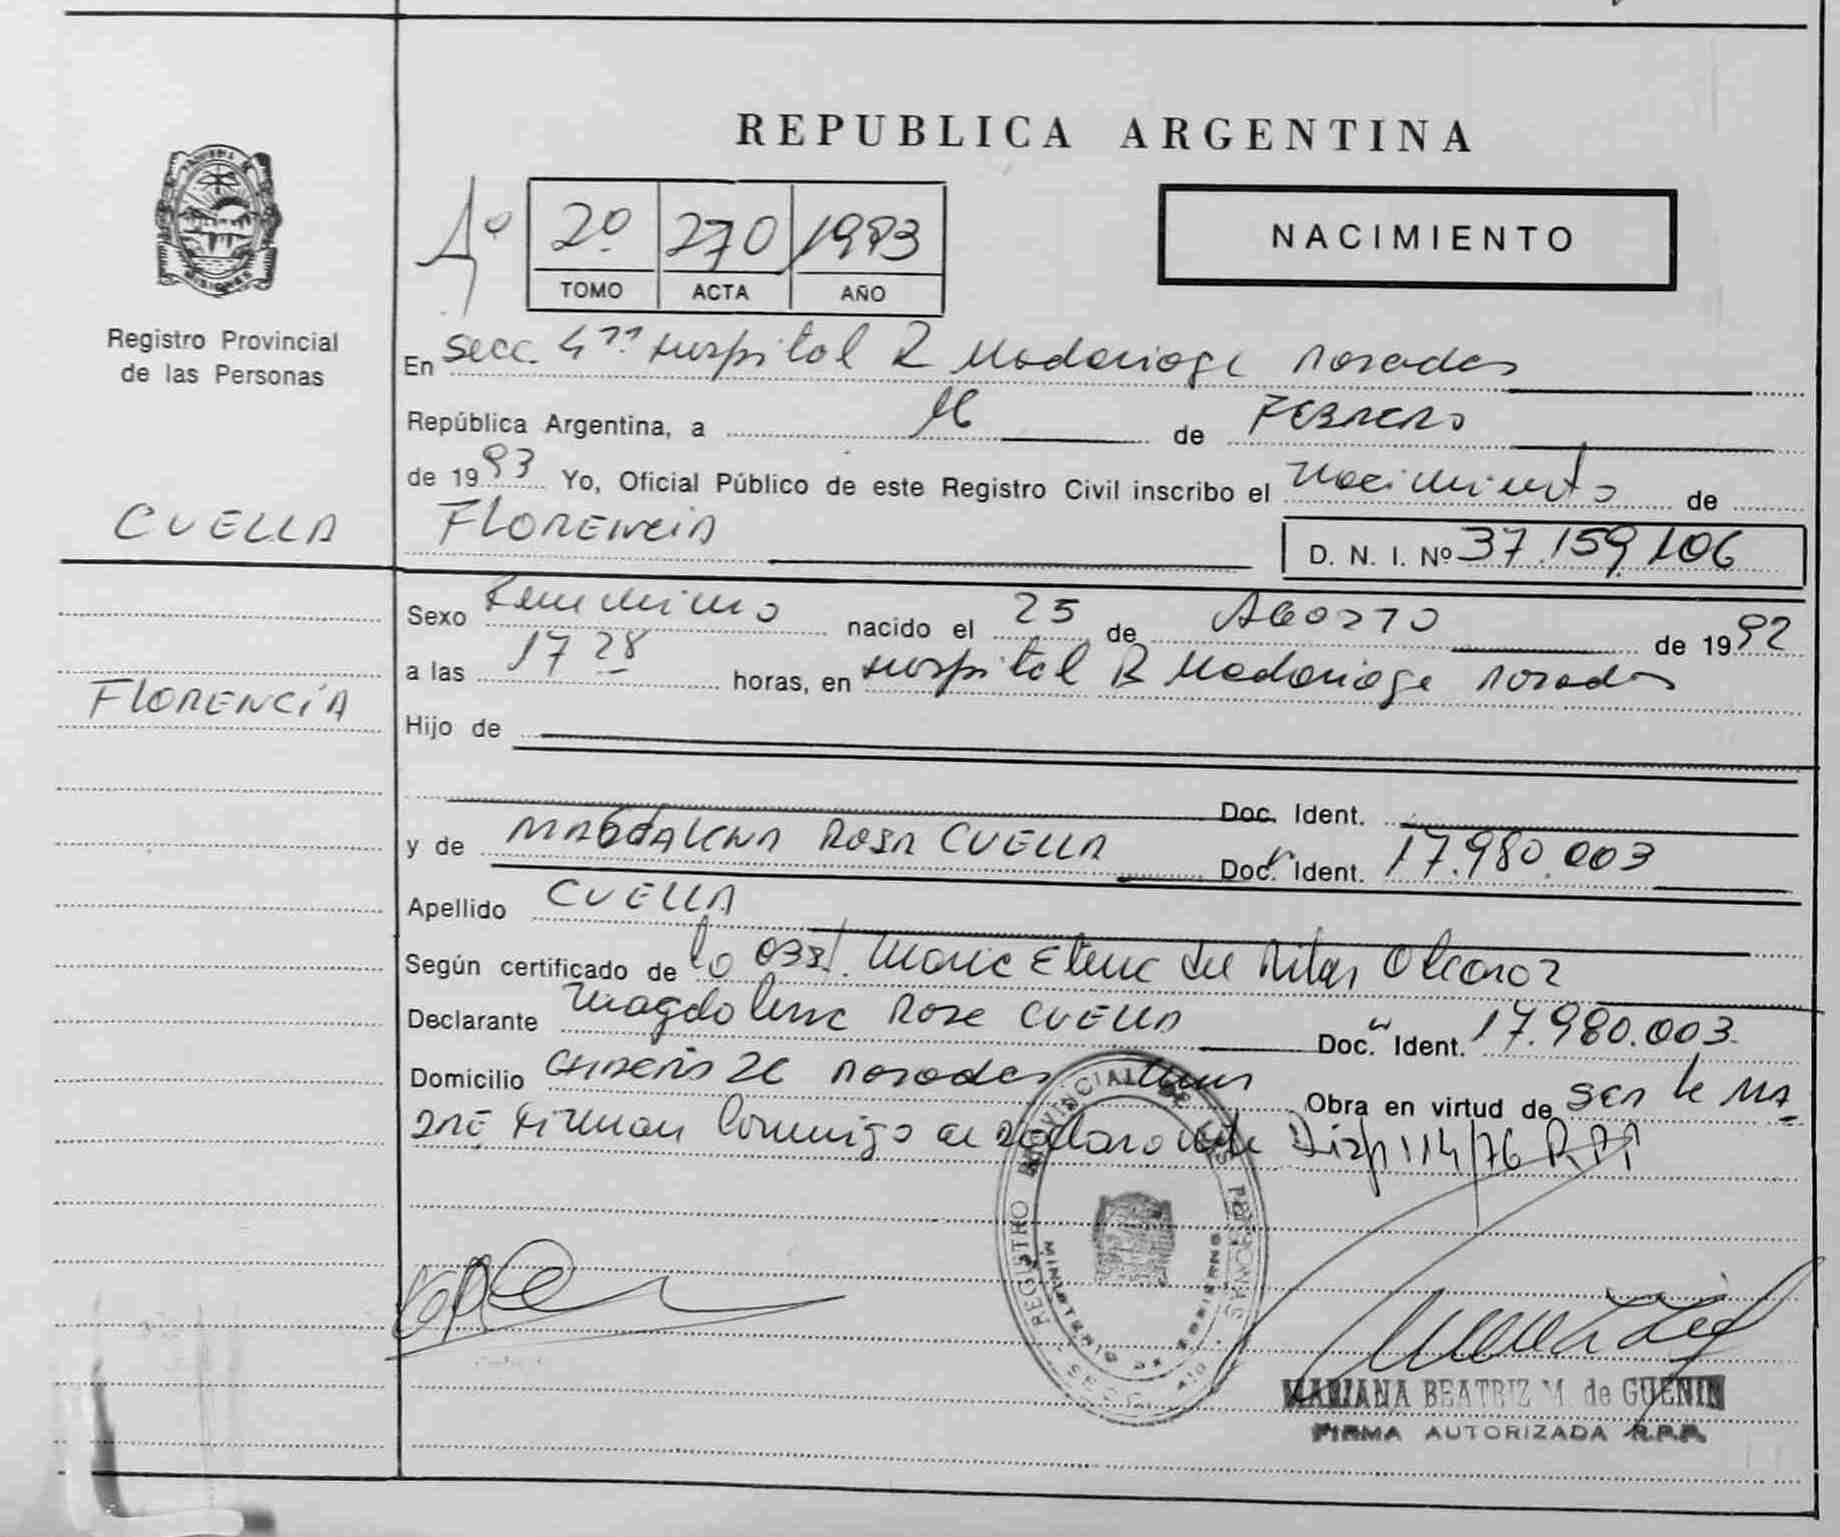 REPUBLICA ARGENTINA
2º 270 1993
TOMO ACTA AÑO
NACIMIENTO
Registro Provincial
de las Personas
En secc. 4ª Hospital R Madariaga Posadas
República Argentina, a de FEBRERO
de 1993 Yo, Oficial Público de este Registro Civil inscribo el Nacimiento de
CUELLA
FLORENCIA
D. N. I. Nº 37.159.106
Sexo Femenino nacido el 25 de AGOSTO de 1992
a las 17 28 horas, en Hospital R Madariaga Posadas
FLORENCIA
Hijo de
Doc. Ident.
y de MAGDALENA ROSA CUELLA Doc. Ident. 17.980.003
Apellido CUELLA
Según certificado de la Obst. Maria Elena del Pilar Alcaraz
Declarante Magdalena Rosa CUELLA Doc. Ident. 17.980.003
Domicilio 26 Posadas Obra en virtud de ser la MA
DRE Firman Conmigo Disp 114/76 RPP
REGISTRO PROVINCIAL DE LAS PERSONAS
MINISTERIO DE GOBIERNO
MARIANA BEATRIZ M. de GUENIN
FIRMA AUTORIZADA R.P.P.